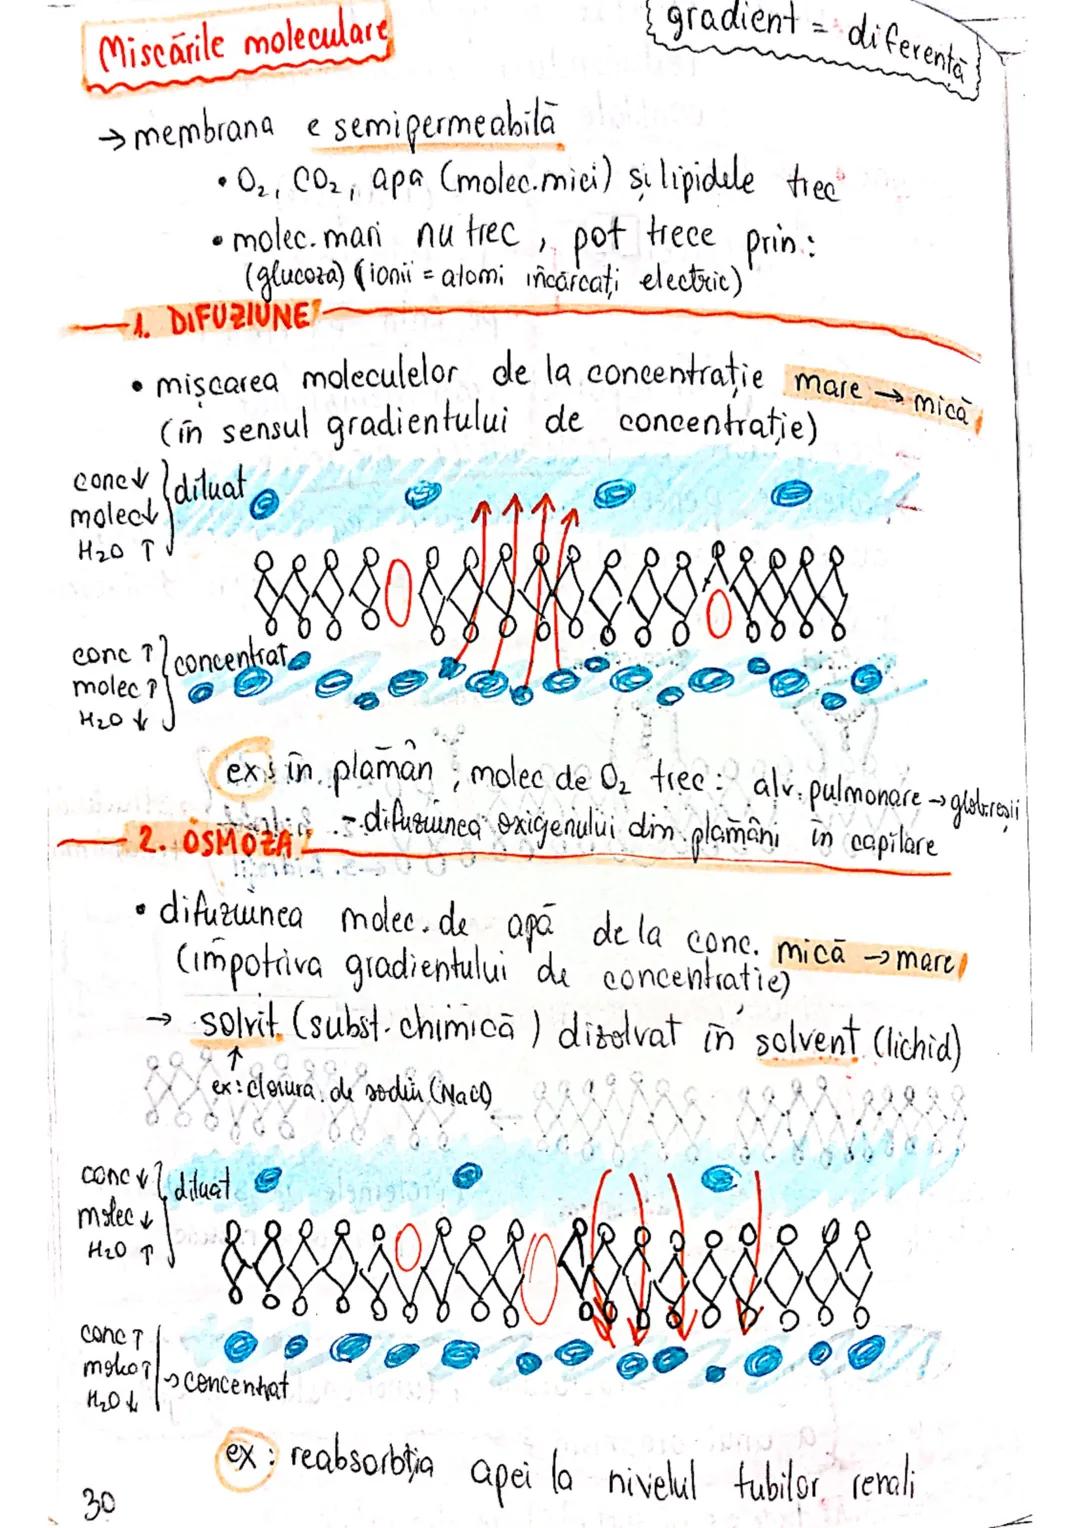 gradient = diferență
Mișcările moleculare
→ membrana e semipermeabilă
• O₂, CO₂, apa (molec.mici) și lipidele trec
• molec. mari nu trec, pot trece prin:
(glucoza) (ionii = atomi încărcați electric)
1. DIFUZIUNE
• mișcarea moleculelor de la concentrație mare → mică
(în sensul gradientului de concentrație)
conc ↓
molec ↓
H₂O ↑
diluat
conc ↑
molec ↑
H₂O ↓
concentrat
ex: în plămân, molec de O₂ trec: alv. pulmonare → glob. roșii
- difuziunea oxigenului din plămâni în capilare
2. OSMOZA
• difuziunea molec. de apă de la conc. mică → mare
(împotriva gradientului de concentrație)
→ solvit (subst. chimică) dizolvat în solvent (lichid)
↑
ex: clorura de sodiu (NaCl)
conc ↓
molec ↓
H₂O ↑
diluat
conc ↑
molec ↑
H₂O ↓
→ concentrat
ex: reabsorbția apei la nivelul tubilor renali
30